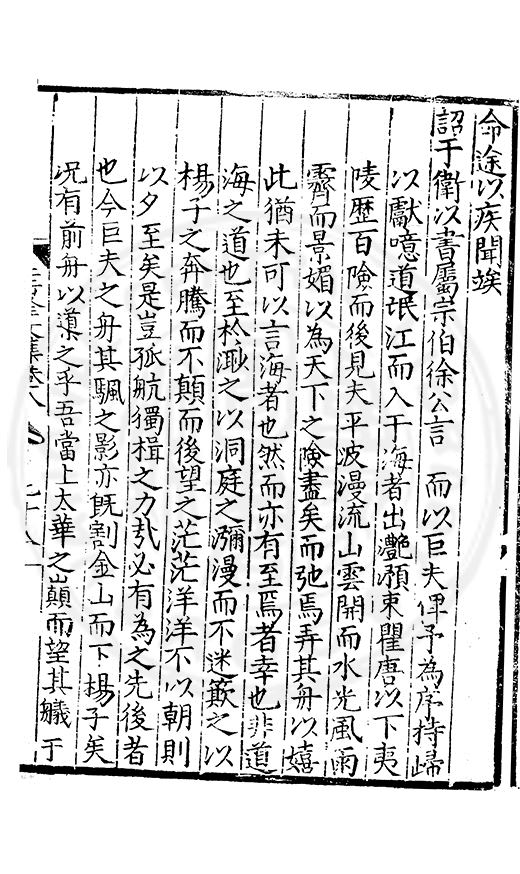 命途以疾聞竢
詔于衛以書屬宗伯徐公言　而以巨夫俾予為序持歸
以獻噫道岷江而入于海者出灩澦東瞿唐以下夷
陵歷百險而後見夫平波漫流山雲開而水光風雨
霽而景媚以為天下之險盡矣而弛焉弄其舟以嬉
此猶未可以言海者也然而亦有至焉者幸也非道
海之道也至於澥之以洞庭之瀰漫而不迷簸之以
楊子之奔騰而不顛而後望之茫茫洋洋不以朝則
以夕至矣是豈孤航獨楫之力㢤必有為之先後者
也今巨夫之舟其颿之影亦既割金山而下楊子矣
况有前舟以導之乎吾當上太華之巔而望其艤于